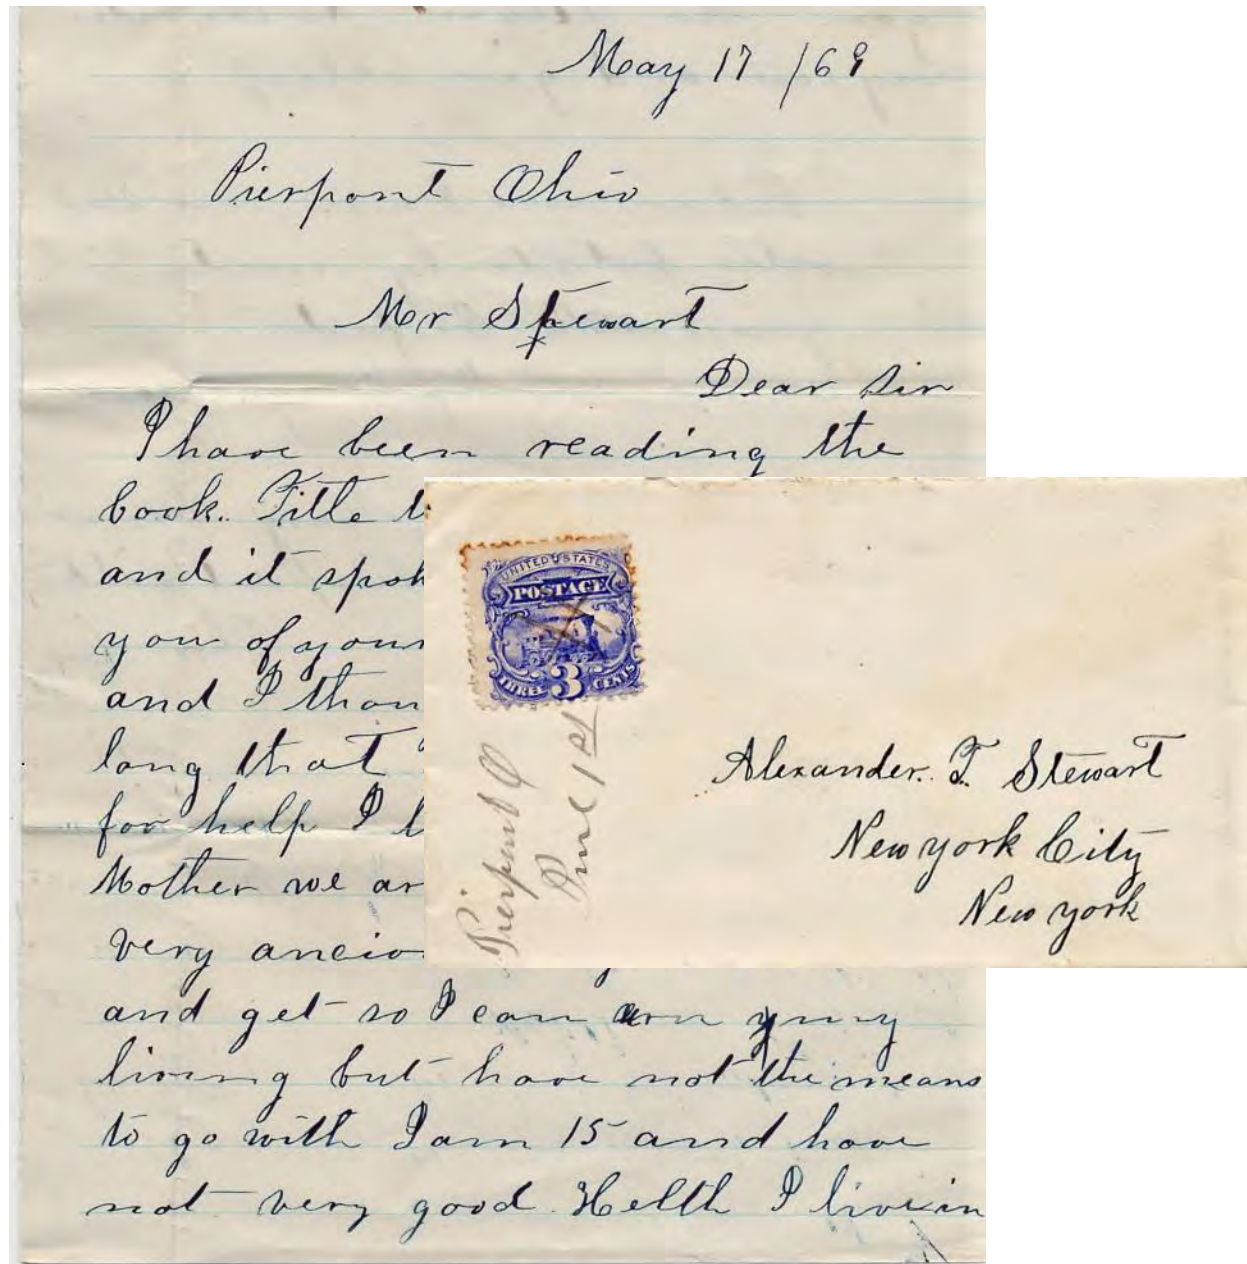 May 17 /69
Pierpont Ohio
Mr Stewart
Dear sir
I have been reading the
book. Title
and it
you of
and I
long that
for help I
Mother we
very
and get so I can my
living but have not the means
to go with I am 15 and have
not very good Helth I live in
UNITED STATES
POSTAGE
THREE 3 CENTS
Pierpont O
June 1st
Alexander. T. Stewart
New york City
New york